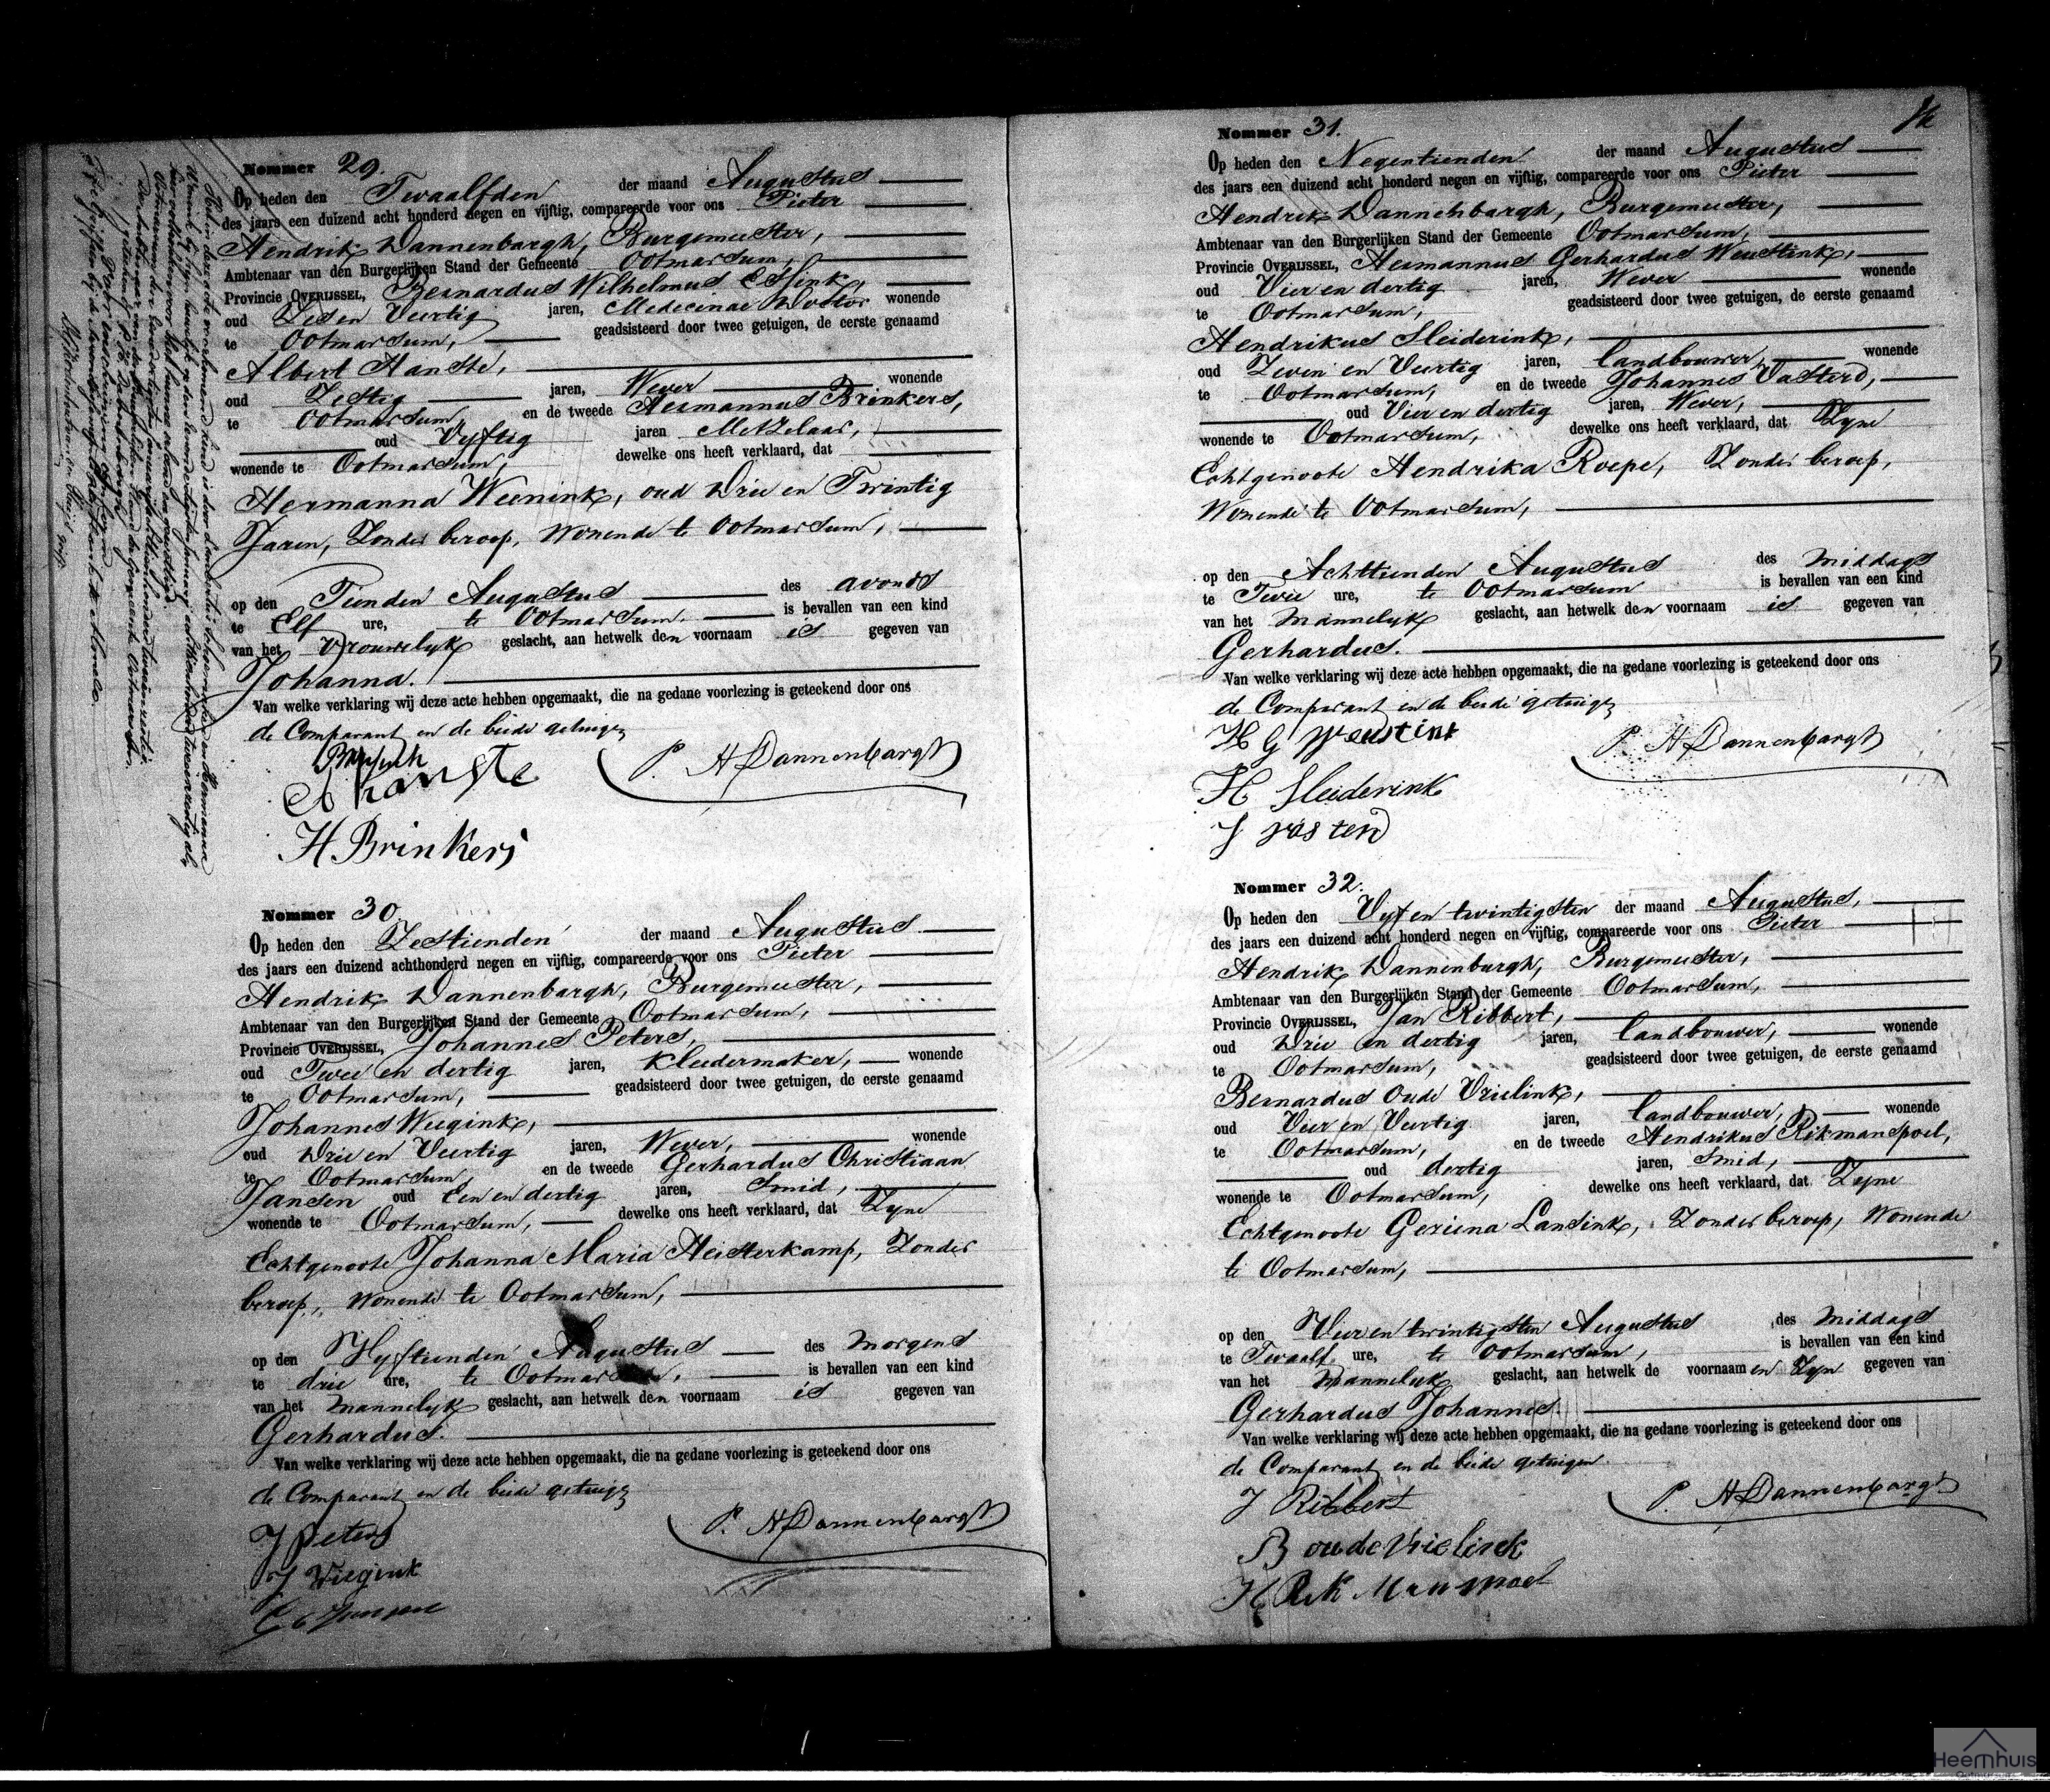 Nommer 29.
Op heden den Twaalfden der maand Augustus
des jaars een duizend acht honderd negen en vijftig, compareerde voor ons Pieter
Hendrik Dannenbargh, Burgemeester,
Ambtenaar van den Burgerlijken Stand der Gemeente Ootmarsum,
Provincie OVERIJSSEL, Bernardus Wilhelmus Essink,
oud Zes en Veertig jaren, Medecinae Doctor wonende
te Ootmarsum, geadsisteerd door twee getuigen, de eerste genaamd
Albert Hanste,
oud Zestig jaren, Wever wonende
te Ootmarsum, en de tweede Hermannus Brinkers,
oud Vyftig jaren Metzelaar,
wonende te Ootmarsum, dewelke ons heeft verklaard, dat
Hermanna Weenink, oud Drie en Twintig
Jaren, Zonder beroep, Wonende te Ootmarsum,
op den Tienden Augustus des avonds
te Elf ure, te Ootmarsum. is bevallen van een kind
van het Vrouwelyk geslacht, aan hetwelk den voornaam is gegeven van
Johanna.
Van welke verklaring wij deze acte hebben opgemaakt, die na gedane voorlezing is geteekend door ons
de Comparant en de beide getuigen
A Hanste P. H Dannenbargh
H Brinkers
Nommer 30.
Op heden den Zestienden der maand Augustus
des jaars een duizend achthonderd negen en vijftig, compareerde voor ons Pieter
Hendrik Dannenbargh, Burgemeester,
Ambtenaar van den Burgerlijken Stand der Gemeente Ootmarsum,
Provincie OVERIJSSEL, Johannes Peters,
oud Twee en dertig jaren, Kleedermaker, wonende
te Ootmarsum, geadsisteerd door twee getuigen, de eerste genaamd
Johannes Weegink,
oud Drie en Veertig jaren, Wever, wonende
te Ootmarsum, en de tweede Gerhardus Christiaan
Jansen oud Een en dertig jaren, Smid,
wonende te Ootmarsum, dewelke ons heeft verklaard, dat Zyne
Echtgenoote Johanna Maria Heisterkamp, Zonder
beroep, Wonende te Ootmarsum,
op den Vyftienden Augustus des Morgens
te drie ure, te Ootmarsum, is bevallen van een kind
van het Mannelyk geslacht, aan hetwelk den voornaam is gegeven van
Gerhardus.
Van welke verklaring wij deze acte hebben opgemaakt, die na gedane voorlezing is geteekend door ons
de Comparant en de beide getuigen
J Peters P. H Dannenbargh
J Wiegink
Nommer 31.
Op heden den Negentienden der maand Augustus
des jaars een duizend acht honderd negen en vijftig, compareerde voor ons Pieter
Hendrik Dannenbargh, Burgemeester,
Ambtenaar van den Burgerlijken Stand der Gemeente Ootmarsum,
Provincie OVERIJSSEL, Hermannus Gerhardus Weustink,
oud Vier en dertig jaren, Wever wonende
te Ootmarsum, geadsisteerd door twee getuigen, de eerste genaamd
Hendrikus Sleiderink,
oud Zeven en Veertig jaren, landbouwer, wonende
te Ootmarsum, en de tweede Johannes Vasterd,
oud Vier en dertig jaren, Wever,
wonende te Ootmarsum, dewelke ons heeft verklaard, dat Zyne
Echtgenoote Hendrika Roepe, Zonder beroep,
Wonende te Ootmarsum,
op den Achttienden Augustus des Middags
te Twee ure, te Ootmarsum is bevallen van een kind
van het Mannelyk geslacht, aan hetwelk den voornaam is gegeven van
Gerhardus.
Van welke verklaring wij deze acte hebben opgemaakt, die na gedane voorlezing is geteekend door ons
de Comparant en de beide getuigen
H G Weustink P. H Dannenbargh
H Sleiderink
Nommer 32.
Op heden den Vyf en twintigsten der maand Augustus,
des jaars een duizend acht honderd negen en vijftig, compareerde voor ons Pieter
Hendrik Dannenbargh, Burgemeester,
Ambtenaar van den Burgerlijken Stand der Gemeente Ootmarsum,
Provincie OVERIJSSEL, Jan Ribbert,
oud Drie en dertig jaren, landbouwer, wonende
te Ootmarsum, geadsisteerd door twee getuigen, de eerste genaamd
Bernardus Oude Vrielink,
oud Vier en Veertig jaren, landbouwer, wonende
te Ootmarsum, en de tweede Hendrikus Rikmanspoel,
oud dertig jaren, Smid,
wonende te Ootmarsum, dewelke ons heeft verklaard, dat Zyne
Echtgenoote Geziena Lansink, Zonder beroep, Wonende
te Ootmarsum,
op den Vier en twintigsten Augustus des Middags
te Twaalf ure, te Ootmarsum, is bevallen van een kind
van het Mannelyk geslacht, aan hetwelk de voornaamen Zyn gegeven van
Gerhardus Johannes.
Van welke verklaring wij deze acte hebben opgemaakt, die na gedane voorlezing is geteekend door ons
de Comparant en de beide getuigen
J Ribbert P. H Dannenbargh
B oude Vrielinck
H Rik Manspoel
Heemhuis